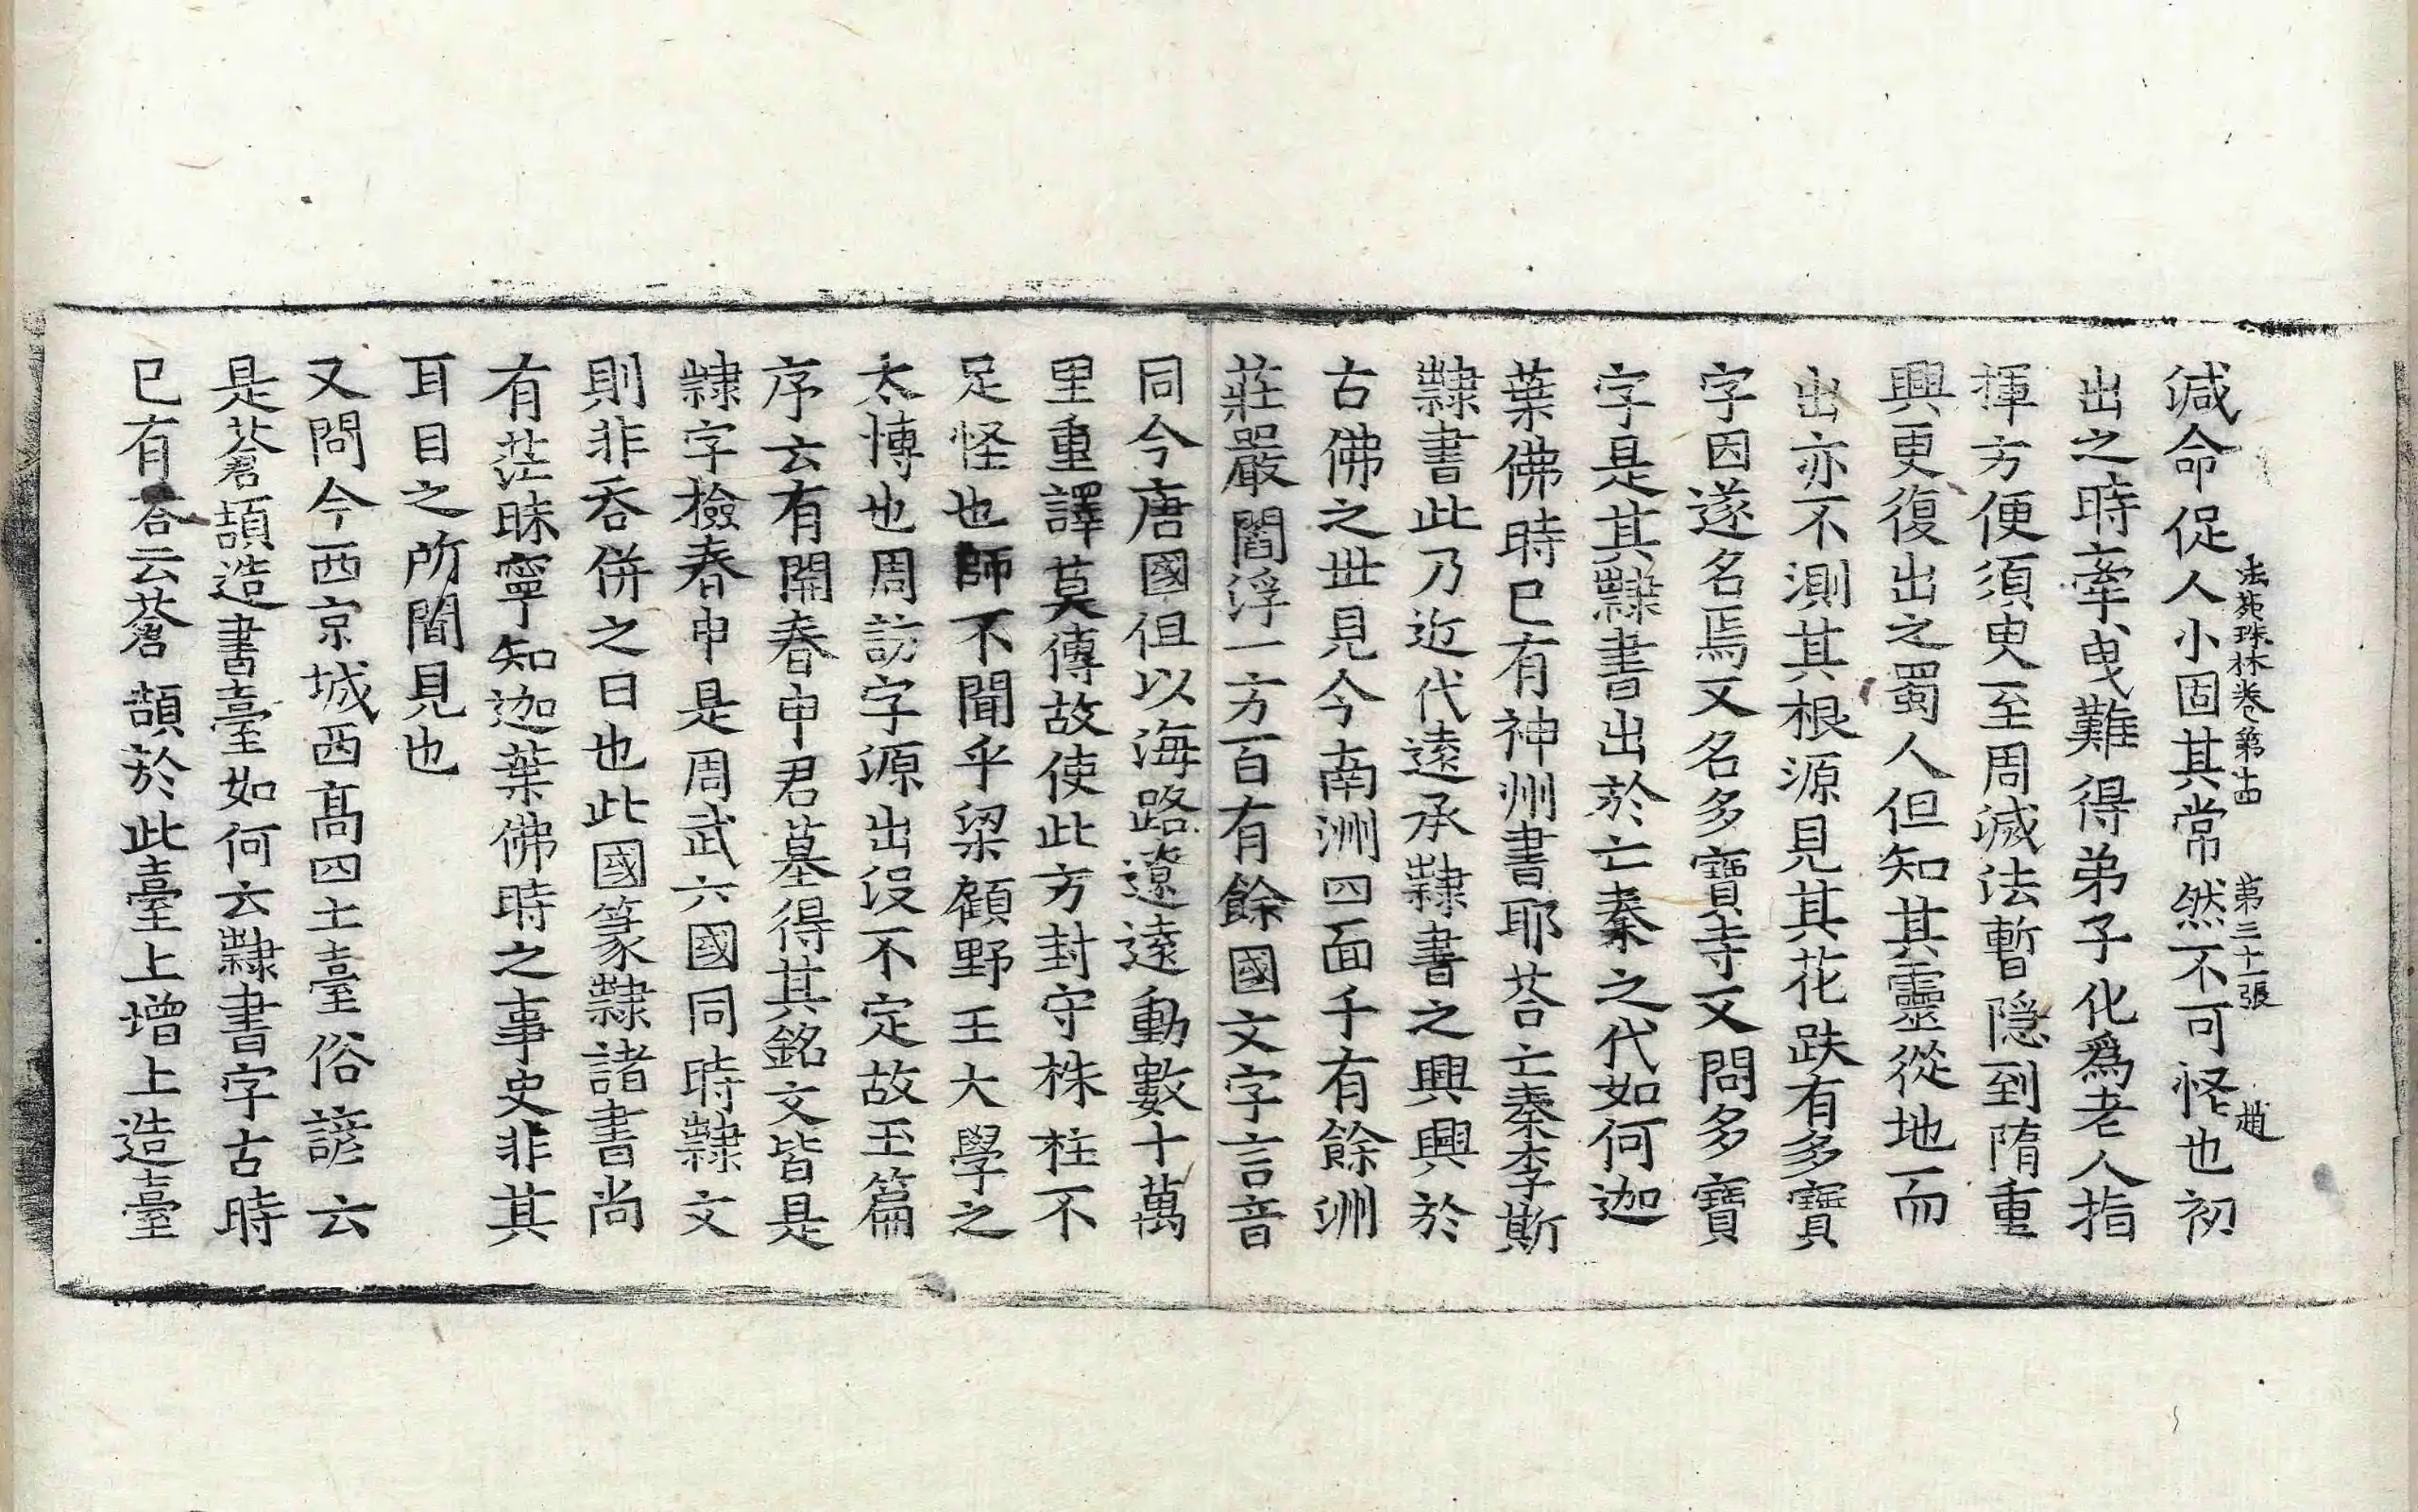 減命促人小固其常然不可怪也初
法苑珠林卷第十四　第三十一張　趙
出之時牽曳難得弟子化爲老人指
揮方便須臾至周滅法暫隱到隋重
興更復出之蜀人但知其靈從地而
出亦不測其根源見其花趺有多寶
字因遂名焉又名多寶寺又問多寶
字是其隸書出於亡秦之代如何迦
葉佛時已有神州書耶荅亡秦李斯
隸書此乃近代遠承隸書之興興於
古佛之世見今南洲四面千有餘洲
莊嚴閻浮一方百有餘國文字言音
同今唐國但以海路遼遠動數十萬
里重譯莫傳故使此方封守株柱不
足怪也師不聞乎梁顧野王大學之
太博也周訪字源出沒不定故玉篇
序云有開春申君墓得其銘文皆是
隸字檢春申是周武六國同時隸文
則非吞併之日也此國篆隸諸書尚
有茫昧寧知迦葉佛時之事史非其
耳目之所聞見也
又問今西京城西高四土臺俗諺云
是蒼頡造書臺如何云隸書字古時
已有荅云蒼頡於此臺上增上造臺